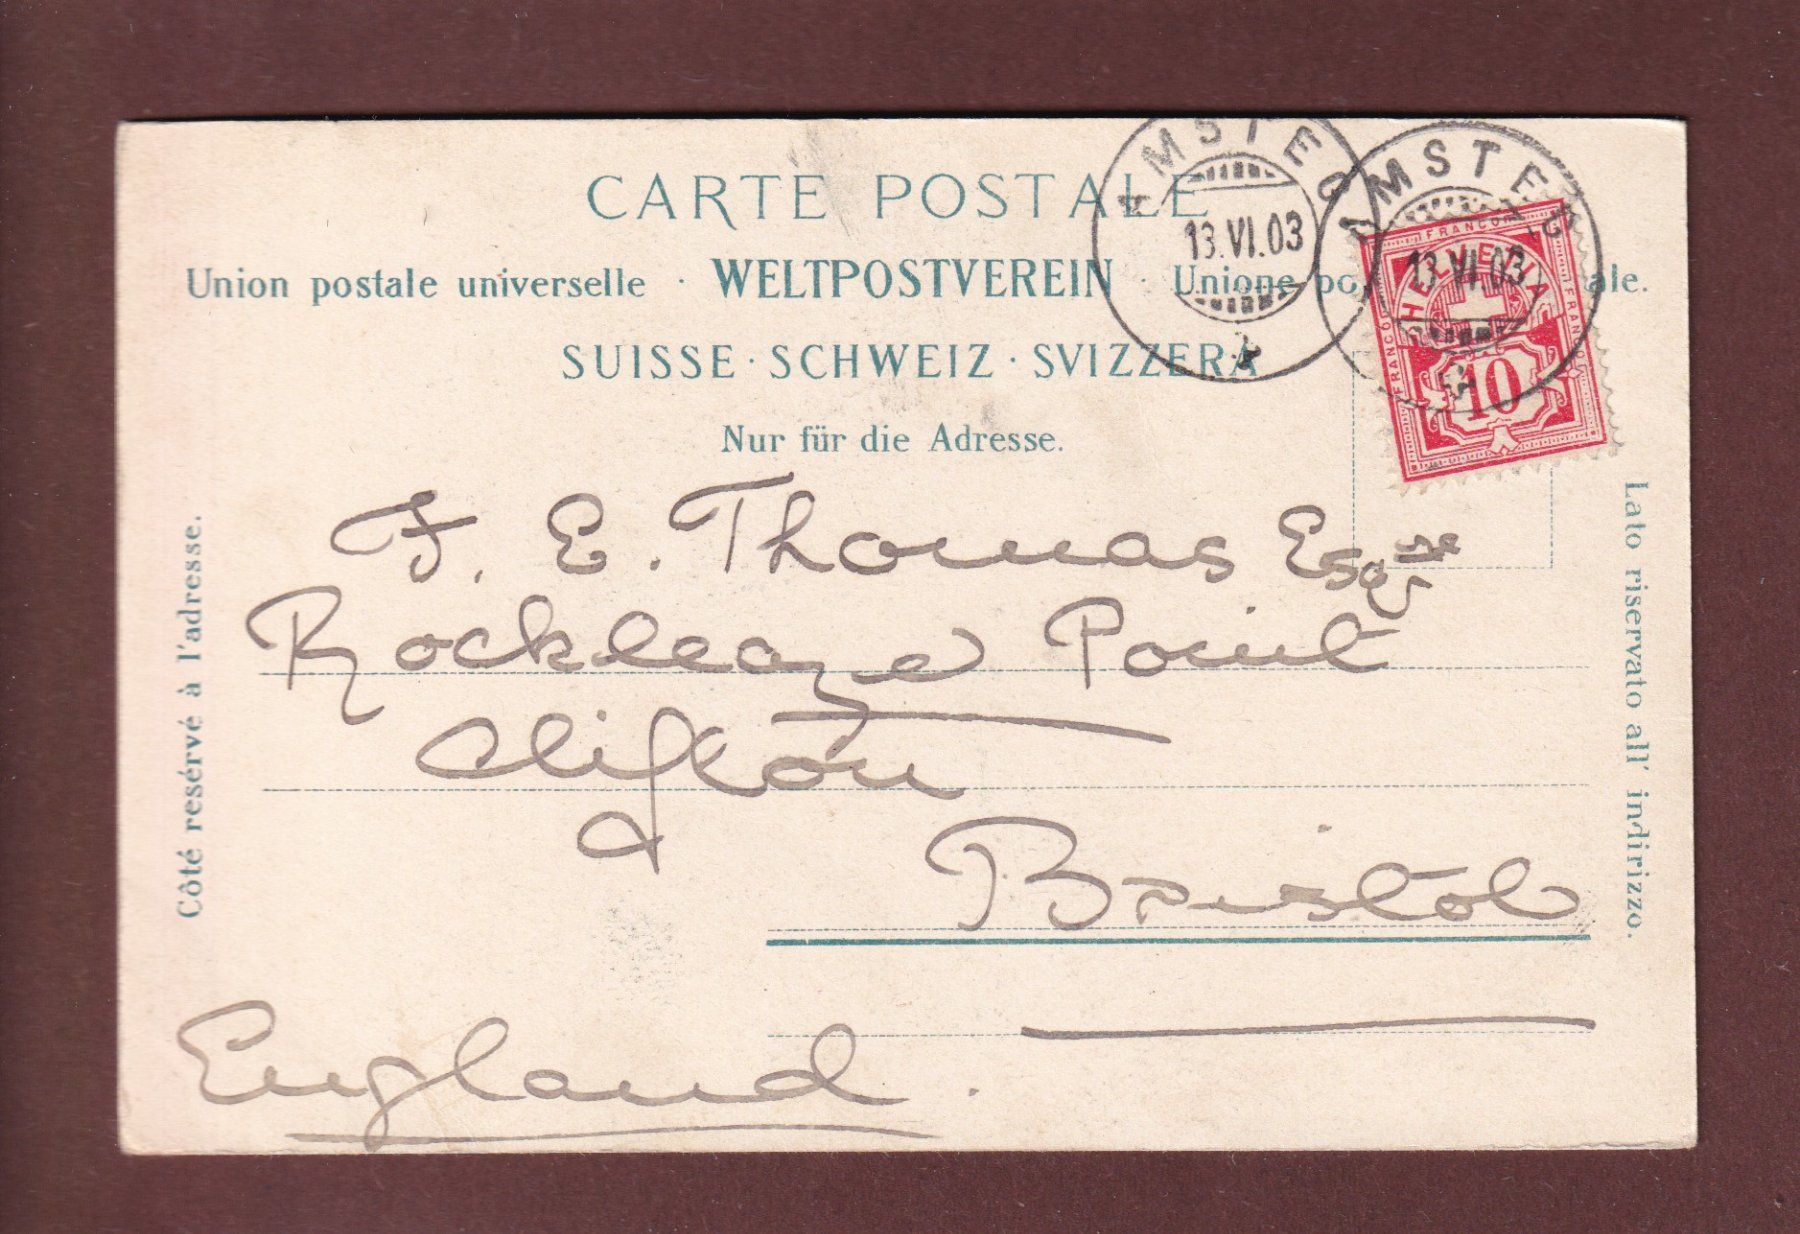 CARTE POSTALE
Union postale universelle · WELTPOSTVEREIN · Unione po ale.
SUISSE · SCHWEIZ · SVIZZERA
Nur für die Adresse.
AMSTEG
13.VI.03
AMSTEG
13.VI.03
FRANCO
FRANCO
FRANCO
HELVETIA
10
Côté resérvé à l'adresse.
Lato riservato all' indirizzo.
F. E. Thomas Esqre
Rockleaze Point
Clifton
Bristol
England.